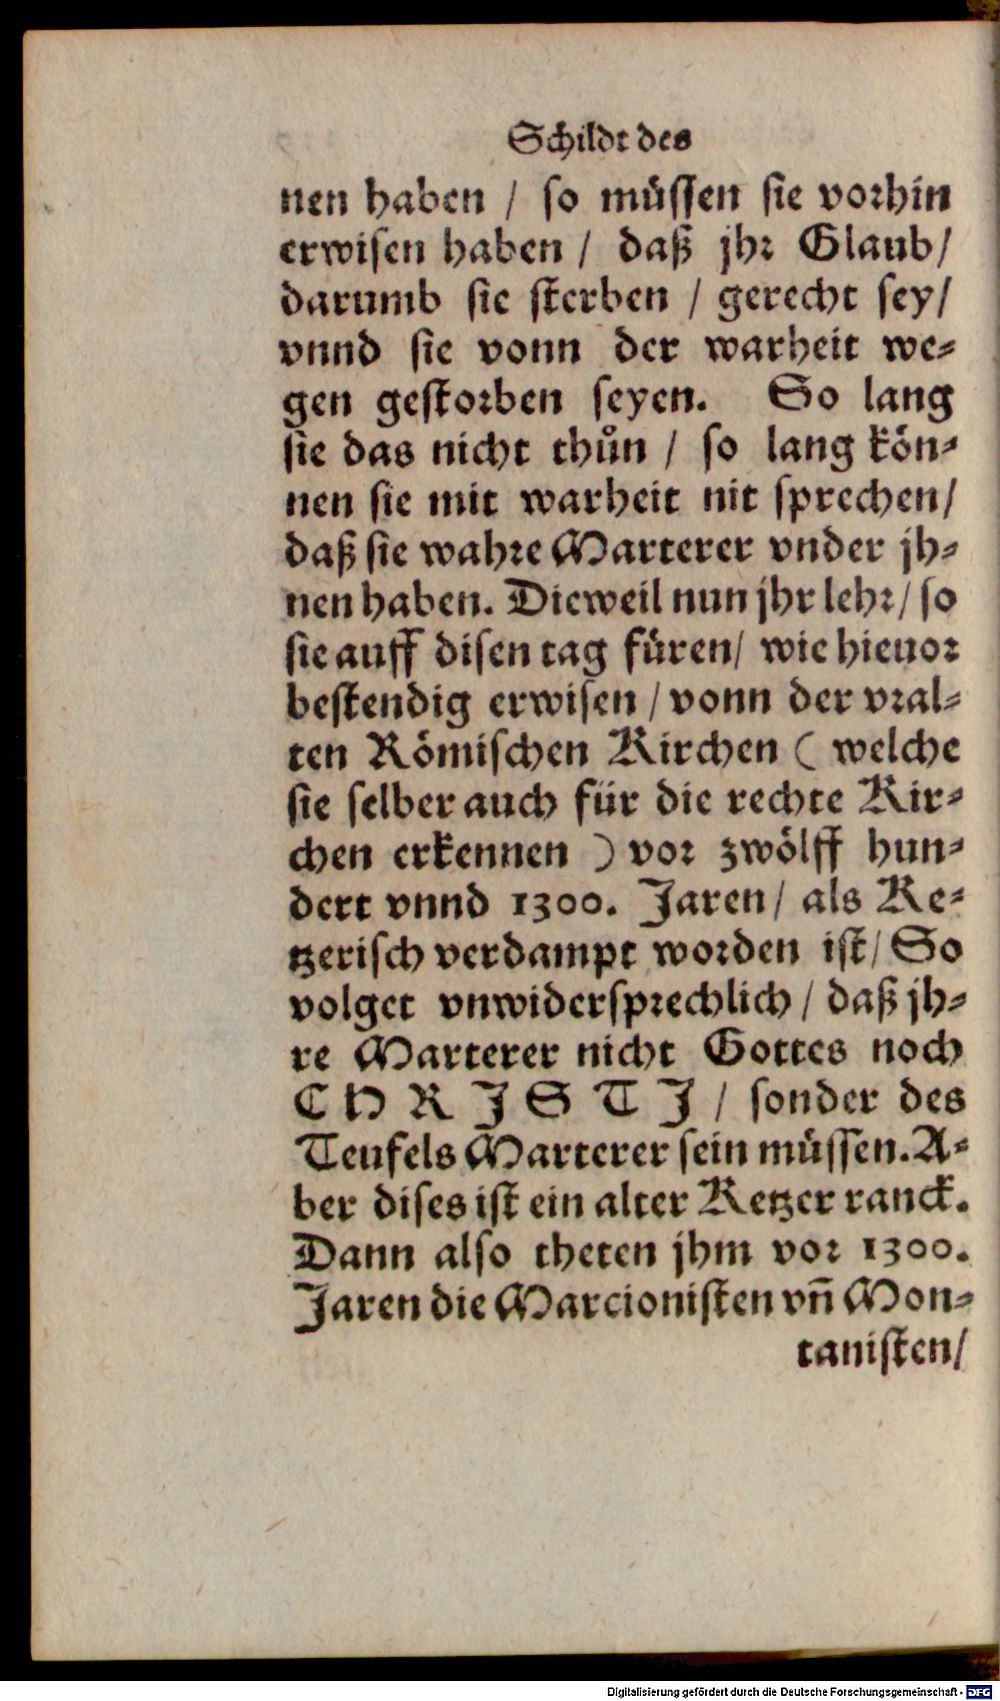 Schildt des
nen haben / so müssen sie vorhin
erwisen haben / daß jhr Glaub/
darumb sie sterben / gerecht sey/
vnnd sie vonn der warheit we-
gen gestorben seyen. So lang
sie das nicht thůn / so lang kön-
nen sie mit warheit nit sprechen/
daß sie wahre Marterer vnder jh-
nen haben. Dieweil nun jhr lehr/ so
sie auff disen tag füren/ wie hieuor
bestendig erwisen / vonn der vral-
ten Römischen Kirchen ( welche
sie selber auch für die rechte Kir-
chen erkennen ) vor zwölff hun-
dert vnnd 1300. Jaren/ als Ke-
tzerisch verdampt worden ist/ So
volget vnwidersprechlich / daß jh-
re Marterer nicht Gottes noch
C H R J S T J / sonder des
Teufels Marterer sein müssen. A-
ber dises ist ein alter Ketzer ranck.
Dann also theten jhm vor 1300.
Jaren die Marcionisten vñ Mon-
tanisten/
Digitalisierung gefördert durch die Deutsche Forschungsgemeinschaft - DFG